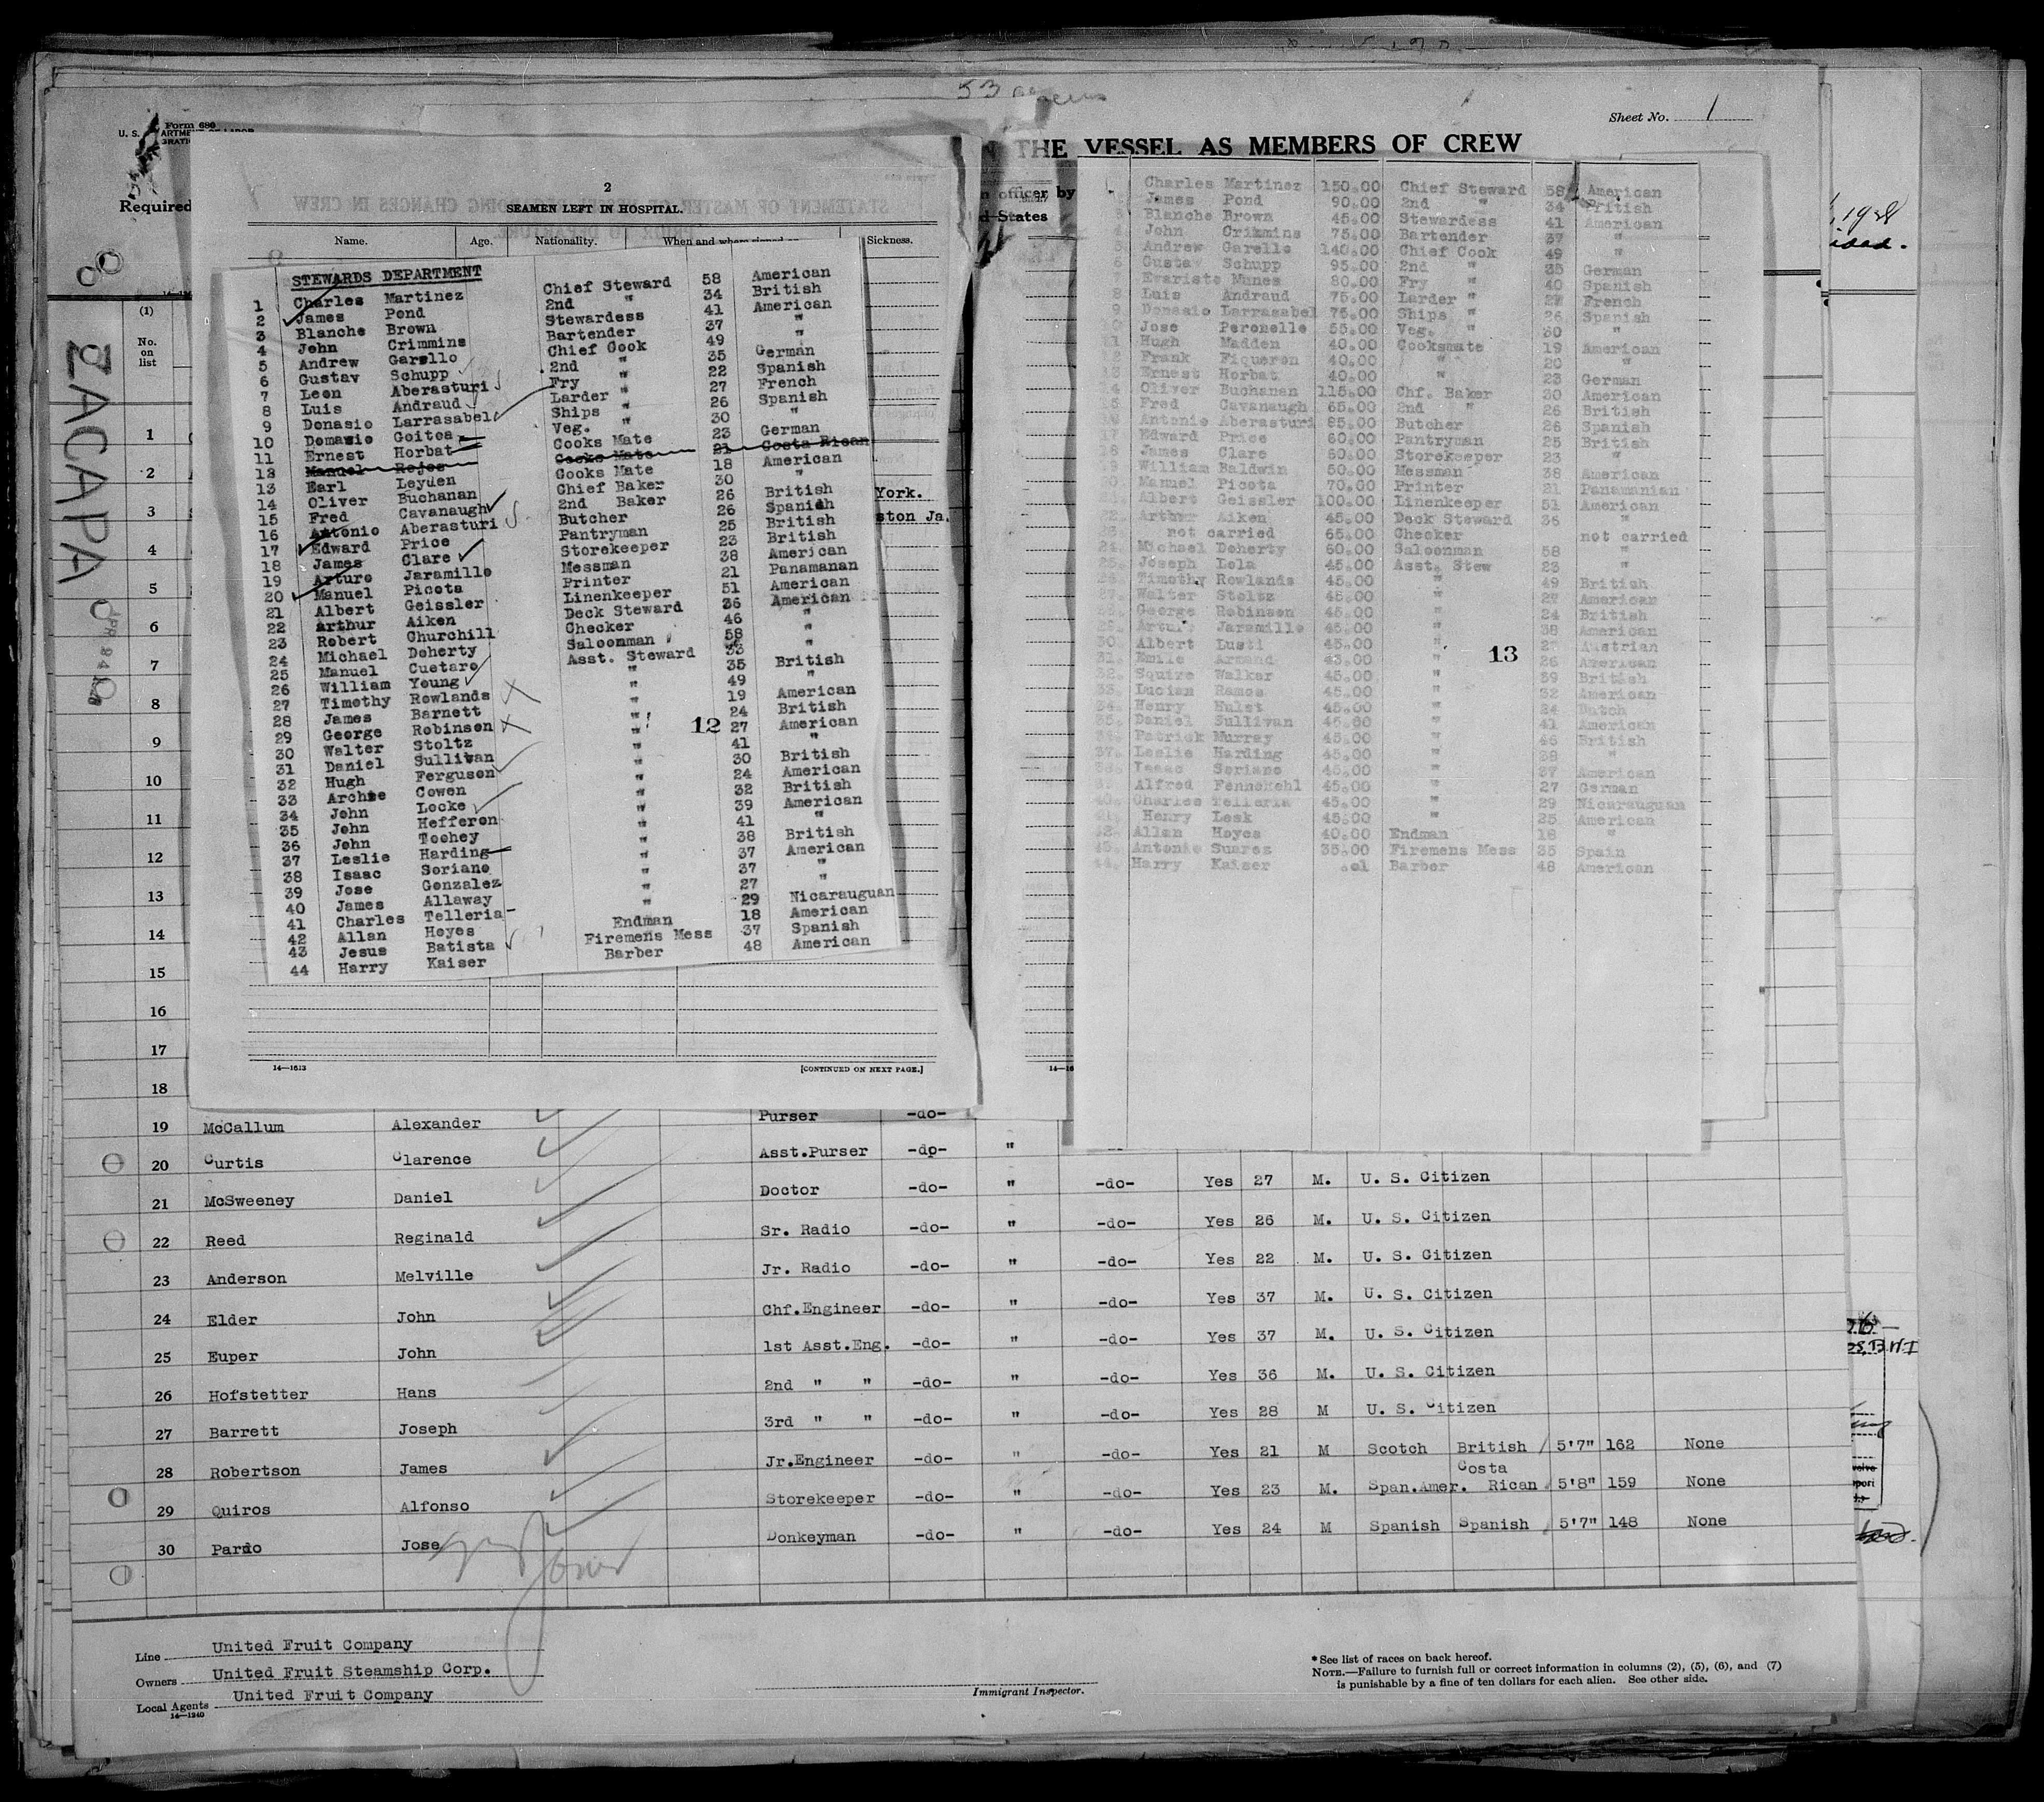 Sheet No. 1
Form 680
U. S.
THE VESSEL AS MEMBERS OF CREW
Required
officer by
States
ZACAPA
(1)
No.
on
list
2
SEAMEN LEFT IN HOSPITAL.
Name. Age. Nationality. When and where signed on Sickness.
STEWARDS DEPARTMENT
1 Charles Martinez Chief Steward 58 American
2 James Pond 2nd " 34 British
3 Blanche Brown Stewardess 41 American
4 John Crimmins Bartender 37 "
5 Andrew Garello Chief Cook 49 "
6 Gustav Schupp 2nd " 35 German
7 Leon Aberasturi Fry " 22 Spanish
8 Luis Andraud Larder " 27 French
9 Donasio Larrasabel Ships " 26 Spanish
10 Domasio Goitea Veg. " 30 "
11 Ernest Horbat Cooks Mate 23 German
12 Manuel Rojos Cooks Mate 21 Costa Rican
13 Earl Leyden Cooks Mate 18 American
14 Oliver Buchanan Chief Baker 30 "
15 Fred Cavanaugh 2nd Baker 26 British
16 Antonio Aberasturi Butcher 26 Spanish
17 Edward Price Pantryman 25 British
18 James Clare Storekeeper 23 British
19 Arturo Jaramillo Messman 38 American
20 Manuel Picota Printer 21 Panamanan
21 Albert Geissler Linenkeeper 51 American
22 Arthur Aiken Deck Steward 36 American
23 Robert Churchill Checker 46 "
24 Michael Doherty Saloonman 58 "
25 Manuel Cuetaro Asst. Steward 33 "
26 William Young " 35 British
27 Timothy Rowlands " 49 "
28 James Barnett " 19 American
29 George Robinson " 24 British
30 Walter Stoltz " 27 American
31 Daniel Sullivan " 41 "
32 Hugh Ferguson " 30 British
33 Archie Cowen " 24 American
34 John Locke " 32 British
35 John Hefferon " 39 American
36 John Toohey " 41 "
37 Leslie Harding " 38 British
38 Isaac Soriano " 37 American
39 Jose Gonzalez " 37 "
40 James Allaway " 27 "
41 Charles Telleria " 29 Nicarauguan
42 Allan Hoyes Endman 18 American
43 Jesus Batista Firemens Mess 37 Spanish
44 Harry Kaiser Barber 48 American
12
York.
ston Ja.
14—1613 [CONTINUED ON NEXT PAGE.]
Charles Martinez 150.00 Chief Steward 58 American
James Pond 90.00 2nd " 34 British
Blanche Brown 45.00 Stewardess 41 American
John Crimmins 75.00 Bartender 37 "
Andrew Garello 140.00 Chief Cook 49 "
Gustav Schupp 95.00 2nd " 35 German
Evariste Munes 80.00 Fry " 40 Spanish
8 Luis Andraud 75.00 Larder " 27 French
9 Donasio Larrasabel 75.00 Ships " 26 Spanish
Jose Peronelle 55.00 Veg. " 30 "
Hugh Madden 40.00 Cooksmate 19 American
Frank Figueron 40.00 " 20 "
Ernest Horbat 40.00 " 23 German
14 Oliver Buchanan 115.00 Chf. Baker 30 American
Fred Cavanaugh 65.00 2nd " 26 British
Antonio Aberasturi 85.00 Butcher 26 Spanish
17 Edward Price 60.00 Pantryman 25 British
18 James Clare 60.00 Storekeeper 23 "
William Baldwin 50.00 Messman 38 American
Manuel Picota 70.00 Printer 21 Panamanian
Albert Geissler 100.00 Linenkeeper 51 American
22. Arthur Aiken 45.00 Deck Steward 36 "
23. not carried 65.00 Checker not carried
24. Michael Doherty 60.00 Saloonman 58 "
25. Joseph Lola 45.00 Asst. Stew 23 "
Timothy Rowlands 45.00 " 49 British
Walter Stoltz 45.00 " 27 American
George Robinson 45.00 " 24 British
Jaramillo 45.00 " 38 American
30. Albert Lusti 45.00 " Austrian
Emile Armand 43.00 " 26 American
32. Squire Walker 45.00 " 39 British
33. Lucian Ramos 45.00 " 32 American
34. Henry Hulst 45.00 " 24 Dutch
35. Daniel Sullivan 45.00 " 41 American
Patrick Murray 45.00 " 46 British
37. Leslie Harding 45.00 " 38 "
38. Isaac Soriano 45.00 " 37 American
Alfred Fennekohl 45.00 " 27 German
40. Charles Telleria 45.00 " 29 Nicarauguan
Henry Lesk 45.00 " 25 American
42. Allan Hoyes 40.00 Endman 18 "
43. Antonio Suarez 35.00 Firemens Mess 35 Spain
44. Harry Kaiser .01 Barber 48 American
13
1
2
3
4
5
6
7
8
9
10
11
12
13
14
15
16
17
18
19 McCallum Alexander Purser -do-
20 Curtis Clarence Asst.Purser -do- "
21 McSweeney Daniel Doctor -do- " -do- Yes 27 M. U. S. Citizen
22 Reed Reginald Sr. Radio -do- " -do- Yes 26 M. U. S. Citizen
23 Anderson Melville Jr. Radio -do- " -do- Yes 22 M. U. S. Citizen
24 Elder John Chf.Engineer -do- " -do- Yes 37 M. U. S. Citizen
25 Euper John 1st Asst.Eng. -do- " -do- Yes 37 M. U. S. Citizen
26 Hofstetter Hans 2nd " " -do- " -do- Yes 36 M. U. S. Citizen
27 Barrett Joseph 3rd " " -do- " -do- Yes 28 M U. S. Citizen
28 Robertson James Jr.Engineer -do- " -do- Yes 21 M Scotch British 5'7" 162 None
29 Quiros Alfonso Storekeeper -do- " -do- Yes 23 M. Span.Amer. Costa Rican 5'8" 159 None
30 Pardo Jose Donkeyman -do- " -do- Yes 24 M Spanish Spanish 5'7" 148 None
Line United Fruit Company
Owners United Fruit Steamship Corp.
Local Agents United Fruit Company
14—1240
Immigrant Inspector.
* See list of races on back hereof.
NOTE.—Failure to furnish full or correct information in columns (2), (5), (6), and (7)
is punishable by a fine of ten dollars for each alien. See other side.